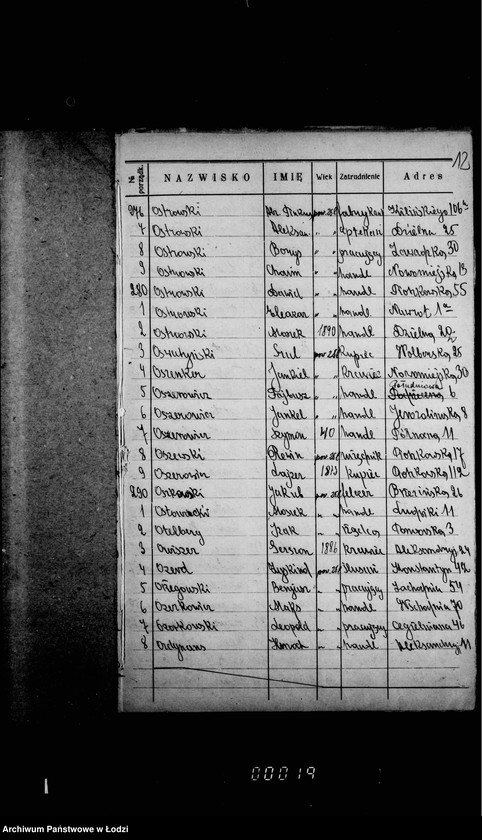 12
№ porządk. NAZWISKO IMIĘ Wiek Zatrudnienie Adres
276 Ostrowski pow. 25 l. fabrykant Kilińskiego 106a
7 Ostrowski Aleksan. " " Dzielna 25
8 Ostrowski Borys " " pracujący Zawadzka 30
9 Ostrowski Chaim " " handl. Nowomiejska 13
280 Ostrowski Dawid " " handl. Piotrkowska 55
1 Ostrowski Eleazar " " handl. Nawrot 1a
2 Ostrowski Marek 1890 handl. Dzielna 20
3 Szul pow. 25 l. kupiec Wólczańska 25
4 Oszenkar Jankiel " " krawiec Nowomiejska 30
5 Oszerowicz Fajbusz " " handl. Południowa 6
6 Oszerowicz Jankel " " handl. Jerozolimska 8
7 Oszerowicz Szymon 40 handl. Północna 11
8 Oszerski pow. 25 l. Piotrkowska 17
9 Oszerowicz Lajzer 1873 kupiec Piotrkowska 112
290 Oszkowski Jakub pow. 25 l. felczer Brzezińska 26
1 Mosek " " handl. 11
2 Otelberg Icak " " Pomorska 3
3 Gerszon 1886 krawiec Aleksandryj. 24
4 Ozerd Zyskind pow. 25 l. Konstantyn. 42
5 Ożegowski Benjan " " pracujący Zachodnia 54
6 Ozorkowicz Maks " " handl. Wschodnia 70
7 Ozorkowski Leopold " " pracujący Cegielniana 46
8 Ordynans Henoch " " handl. Aleksandryj. 11
00019
Archiwum Państwowe w Łodzi